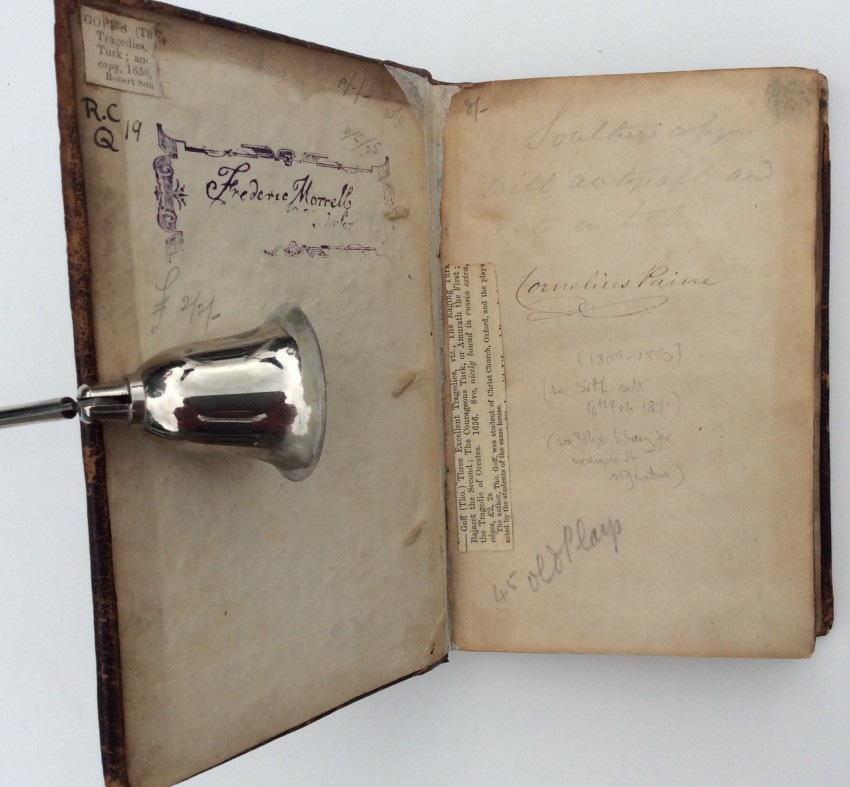 GOFF'S (Th
Tragedies,
Turk; an
copy, 1656,
Robert Sou
R.C
Q 19
Frederic Morrell
£ 2/2/-
8/-
copy
with autograph and
Cornelius Paine
(1809-1890)
(see Soth. sale
Feb 1891)
(see library for
example of
signature)
45 Old Plays
— Goff (Tho.) Three Excellent Tragedies, viz., The Raging Turk
Bajanet the Second; The Courageous Turk, or Amurath the First;
the Tragedie of Orestes. 1656. 8vo, nicely bound in russia extra,
edges, £2, 2s
The author, Tho. Goff, was student of Christ Church, Oxford, and the plays
acted by the students of the same house.